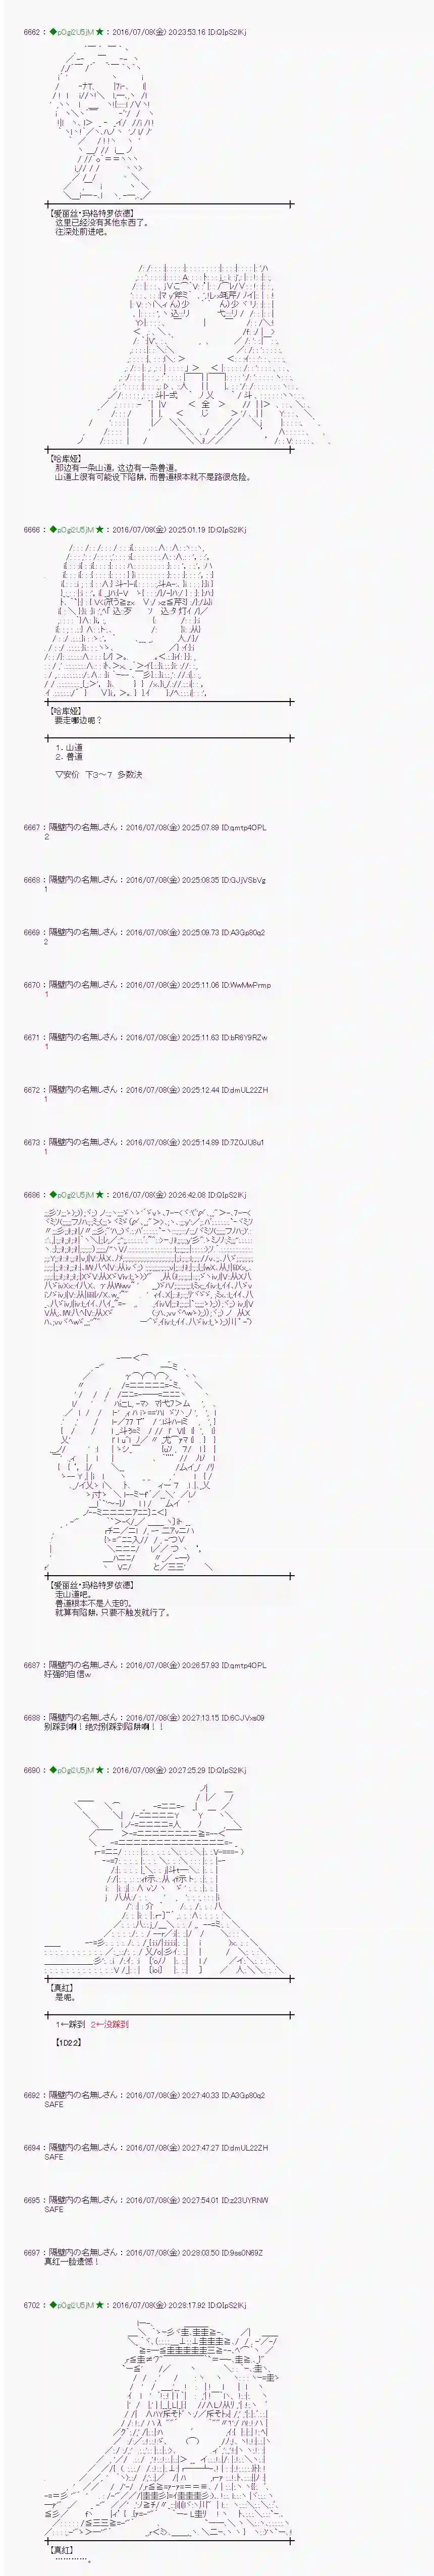 6662 : ◆pOgi2U5jM ★ : 2016/07/08(金) 20:23:53.16 ID:Q|pS2IKj
【爱丽丝•玛格特罗依德】
这里已经没有其他东西了。
往深处前进吧。
【哈库娅】
那边有一条山道，这边有一条兽道。
山道上很有可能设下陷阱，而兽道根本就不是路很危险。
6666 : ◆pOgi2U5jM ★ : 2016/07/08(金) 20:25:01.19 ID:Q|pS2IKj
【哈库娅】
要走哪边呢？
1．山道
2．兽道
▽安价 下3～7 多数决
6667 : 隔壁内の名無しさん : 2016/07/08(金) 20:25:07.89 ID:qmtp4OPL
2
6668 : 隔壁内の名無しさん : 2016/07/08(金) 20:25:08.35 ID:GJjVSbVg
1
6669 : 隔壁内の名無しさん : 2016/07/08(金) 20:25:09.73 ID:A3Gp80q2
2
6670 : 隔壁内の名無しさん : 2016/07/08(金) 20:25:11.06 ID:WwMwPrmp
1
6671 : 隔壁内の名無しさん : 2016/07/08(金) 20:25:11.63 ID:bR6Y9RZw
1
6672 : 隔壁内の名無しさん : 2016/07/08(金) 20:25:12.44 ID:dmUL22ZH
1
6673 : 隔壁内の名無しさん : 2016/07/08(金) 20:25:14.89 ID:7Z0JU8u1
1
6686 : ◆pOgi2U5jM ★ : 2016/07/08(金) 20:26:42.08 ID:Q|pS2IKj
【爱丽丝•玛格特罗依德】
走山道吧。
兽道根本不是人走的。
就算有陷阱，只要不触发就行了。
6687 : 隔壁内の名無しさん : 2016/07/08(金) 20:26:57.93 ID:qmtp4OPL
好强的自信w
6688 : 隔壁内の名無しさん : 2016/07/08(金) 20:27:13.15 ID:6CJVxs09
别踩到啊！绝对别踩到陷阱啊！！
6690 : ◆pOgi2U5jM ★ : 2016/07/08(金) 20:27:25.29 ID:Q|pS2IKj
【真红】
是呢。
1←踩到 2←没踩到
【1D2:2】
6692 : 隔壁内の名無しさん : 2016/07/08(金) 20:27:40.33 ID:A3Gp80q2
SAFE
6694 : 隔壁内の名無しさん : 2016/07/08(金) 20:27:47.27 ID:dmUL22ZH
SAFE
6695 : 隔壁内の名無しさん : 2016/07/08(金) 20:27:54.01 ID:z23UYRNW
SAFE
6697 : 隔壁内の名無しさん : 2016/07/08(金) 20:28:03.50 ID:9ss0N69Z
真红一脸遗憾！
6702 : ◆pOgi2U5jM ★ : 2016/07/08(金) 20:28:17.92 ID:Q|pS2IKj
【真红】
…………。